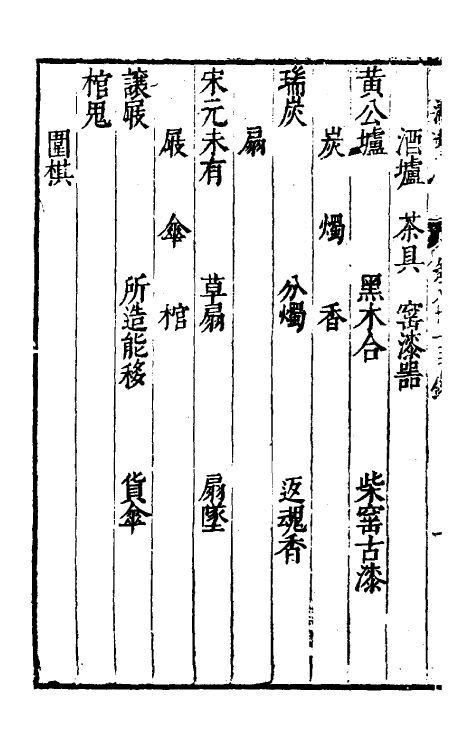 酒壚　茶具　窑漆器
黄公壚　黑木合　柴窑古漆
炭　燭　香
瑞炭　分燭　返魂香
扇
宋元未有　草扇　扇墜
屐　傘　棺
讓屐　所造能移　貨傘
棺鬼
圍棋